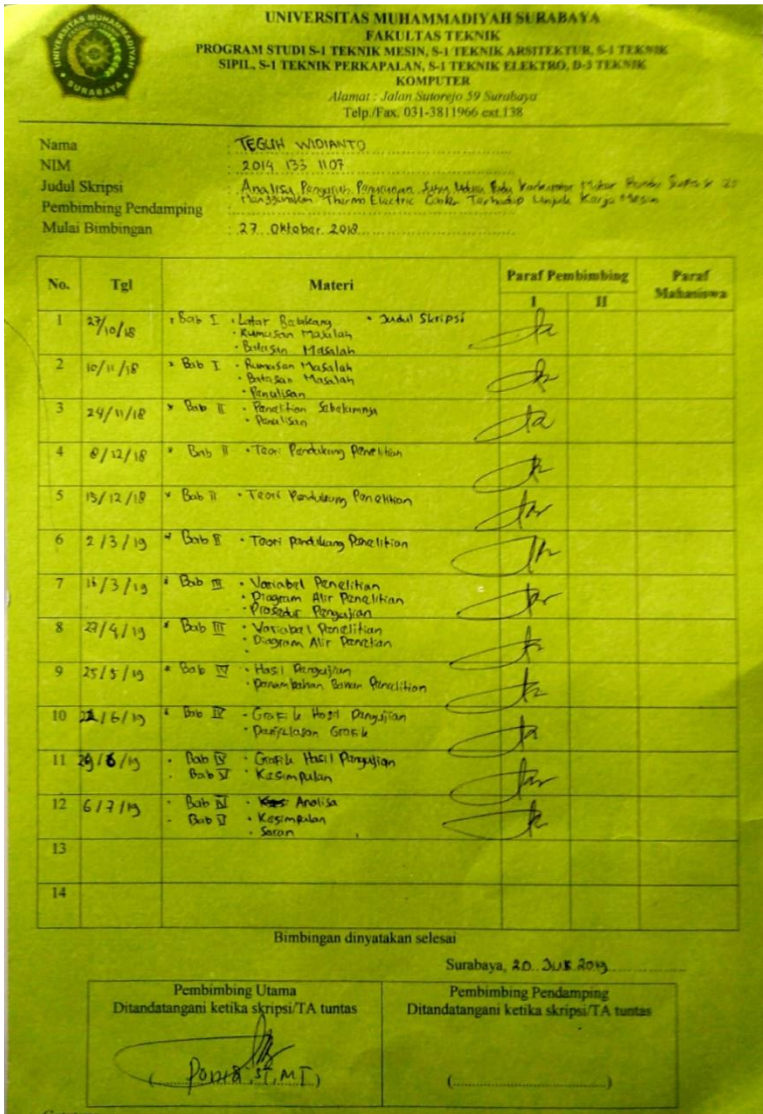 UNIVERSITAS MUHAMMADIYAH SURABAYA
FAKULTAS TEKNIK
PROGRAM STUDI S-1 TEKNIK MESIN, S-1 TEKNIK ARSITEKTUR, S-1 TEKNIK
SIPIL, S-1 TEKNIK PERKAPALAN, S-1 TEKNIK ELEKTRO, D-3 TEKNIK
KOMPUTER
Alamat : Jalan Sutorejo 59 Surabaya
Telp./Fax. 031-3811966 ext.138
Nama : TEGUH WIDIANTO
NIM : 2014 133 1107
Judul Skripsi : Analisa Pengaruh Suhu Udara Pada Karburator Motor Honda
Menggunakan Thermo Electric Cooler Terhadap Unjuk Kerja Mesin
Pembimbing Pendamping :
Mulai Bimbingan : 27 Oktober 2018
No. Tgl Materi Paraf Pembimbing Paraf Mahasiswa
I II
1 27/10/18 • Bab I • Latar Belakang • Judul Skripsi
• Rumusan Masalah
• Batasan Masalah
2 10/11/18 * Bab I • Rumusan Masalah
• Batasan Masalah
• Penulisan
3 24/11/18 * Bab II • Penelitian Sebelumnya
• Penulisan
4 8/12/18 * Bab II • Teori Pendukung Penelitian
5 15/12/18 * Bab II • Teori Pendukung Penelitian
6 2/3/19 * Bab II • Teori Pendukung Penelitian
7 16/3/19 * Bab III • Variabel Penelitian
• Diagram Alir Penelitian
• Prosedur Pengujian
8 27/4/19 * Bab III • Variabel Penelitian
• Diagram Alir Penelitian
9 25/5/19 * Bab IV • Hasil Pengujian
• Penambahan Bahan Penelitian
10 /6/19 * Bab IV - Grafik Hasil Pengujian
• Penjelasan Grafik
11 29/6/19 - Bab IV • Grafik Hasil Pengujian
- Bab V • Kesimpulan
12 6/7/19 - Bab IV • Analisa
- Bab V • Kesimpulan
• Saran
13
14
Bimbingan dinyatakan selesai
Surabaya, 20 2019
Pembimbing Utama
Ditandatangani ketika skripsi/TA tuntas
( Ponidi, ST, MT )
Pembimbing Pendamping
Ditandatangani ketika skripsi/TA tuntas
(..............................)